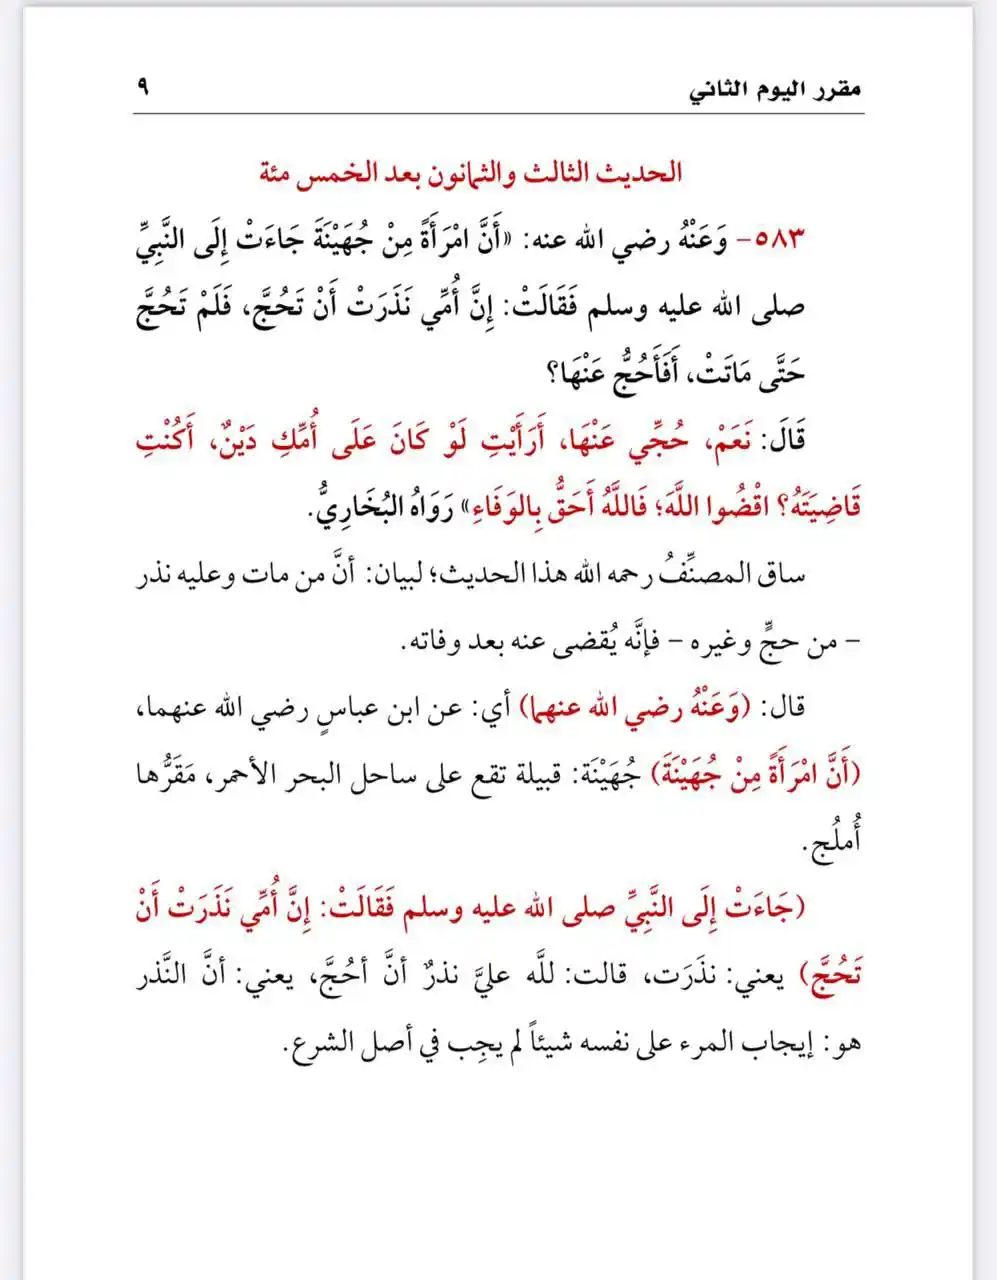 مقرر اليوم الثاني ٩
الحديث الثالث والثمانون بعد الخمس مئة
٥٨٣- وَعَنْهُ رضي الله عنه: «أَنَّ امْرَأَةً مِنْ جُهَيْنَةَ جَاءَتْ إِلَى النَّبِيِّ
صلى الله عليه وسلم فَقَالَتْ: إِنَّ أُمِّي نَذَرَتْ أَنْ تَحُجَّ، فَلَمْ تَحُجَّ
حَتَّى مَاتَتْ، أَفَأَحُجُّ عَنْهَا؟
قَالَ: نَعَمْ، حُجِّي عَنْهَا، أَرَأَيْتِ لَوْ كَانَ عَلَى أُمِّكِ دَيْنٌ، أَكُنْتِ
قَاضِيَتَهُ؟ اقْضُوا اللَّهَ؛ فَاللَّهُ أَحَقُّ بِالوَفَاءِ» رَوَاهُ البُخَارِيُّ.
ساق المصنِّفُ رحمه الله هذا الحديث؛ لبيان: أنَّ من مات وعليه نذر
– من حجٍّ وغيره – فإنَّه يُقضى عنه بعد وفاته.
قال: (وَعَنْهُ رضي الله عنهما) أي: عن ابن عباسٍ رضي الله عنهما،
(أَنَّ امْرَأَةً مِنْ جُهَيْنَةَ) جُهَيْنَة: قبيلة تقع على ساحل البحر الأحمر، مَقَرُّها
أُملُج.
(جَاءَتْ إِلَى النَّبِيِّ صلى الله عليه وسلم فَقَالَتْ: إِنَّ أُمِّي نَذَرَتْ أَنْ
تَحُجَّ) يعني: نذَرَت، قالت: للَّه عليَّ نذرٌ أنَّ أحُجَّ، يعني: أنَّ النَّذر
هو: إيجاب المرء على نفسه شيئاً لم يجِب في أصل الشرع.